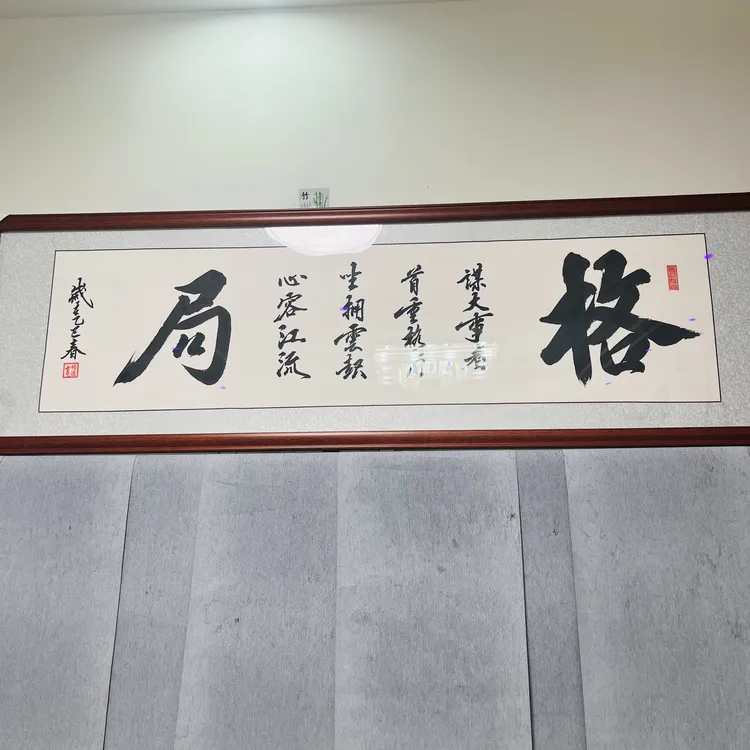 格
謀大事者
首重格局
坐拥雲起
心容江流
局
歲在乙巳春
竹